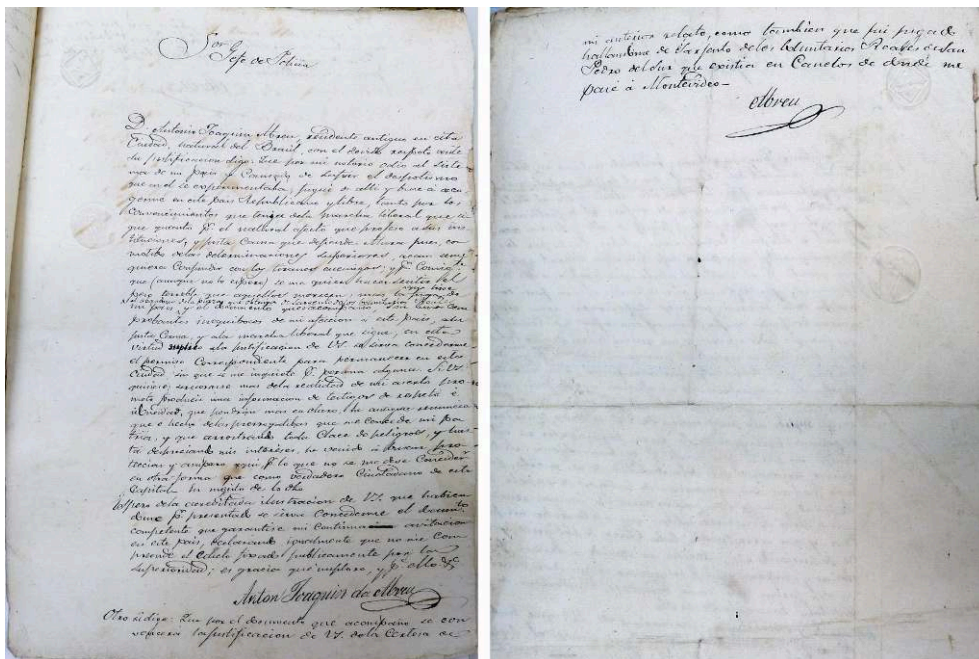 Sor
Gefe de Policia
D. Antonio Joaquin Abreu, residente antiguo en esta
Ciudad, natural del Brasil, con el devido respeto ante
la justificacion digo: Que por mi notorio odio al siste-
ma de mi pais y cansado de sufrir el despotismo
que en el se experimentaba, fugué de alli y vine á aco-
germe en este pais Republicano y libre, tanto por los
convencimientos que tenia de la marcha liberal que si-
gue quanto pr. el natural afecto que profeso a sus ins-
tituciones, y justa Causa que defiende. Ahora pues, con
motivo de las determinaciones Superiores, acaso cual-
quiera Confunda con los tiranos enemigos, y pr.
que (aunque no lo espero) se me quiera hacer sentir el
peso terrible que aquellos merecen; mas la fuga de
mi pais, y el documento que acompaño, son unos com-
probantes inequibocos de mi afeccion a este pais, a su
justa Causa, y a la marcha liberal que sigue, en esta
virtud suplico a la justificacion de VS. se sirva concederme
el permiso Correspondiente para permanecer en esta
Ciudad, sin que se me inquiete pr. persona alguna. Si VS.
quisiere cerciorarse mas de la realidad de mi aserto pro-
meto producir una informacion de testigos de respeto é
que pondrán mas en claro, la antigua renuncia
que é hecho de las prerrogatibas que me concede mi pa-
tria, y que arrostrando toda clase de peligros, y has-
ta despreciando mis intereses, he venido á buscar pro-
teccion y amparo aqui pr. lo que no se me debe Considerar
en otra forma que como verdadero Ciudadano de esta
Capital. En mejido de lo dho
Espero de la acreditada ilustracion de VS. que habien-
dome pr. presentado se sirva Concederme el documto
competente que garantise mi continua avitacion
en este pais, declarando igualmente que no me com-
prende el Edicto fixado publicamente por la
Superioridad; es gracia que imploro, y pr. ello &a
Anton Joaquin de Abreu
Otro si digo: Que por el documento que acompaño se con-
vencera la justificacion de VS. de la Certeza de
mi anterior relato, como tambien que fui fugado
hallandome de Sargento de los Voluntarios Reales de San
Pedro del Sur que existia en Canelos de donde me
pasé á Montevideo-
Abreu